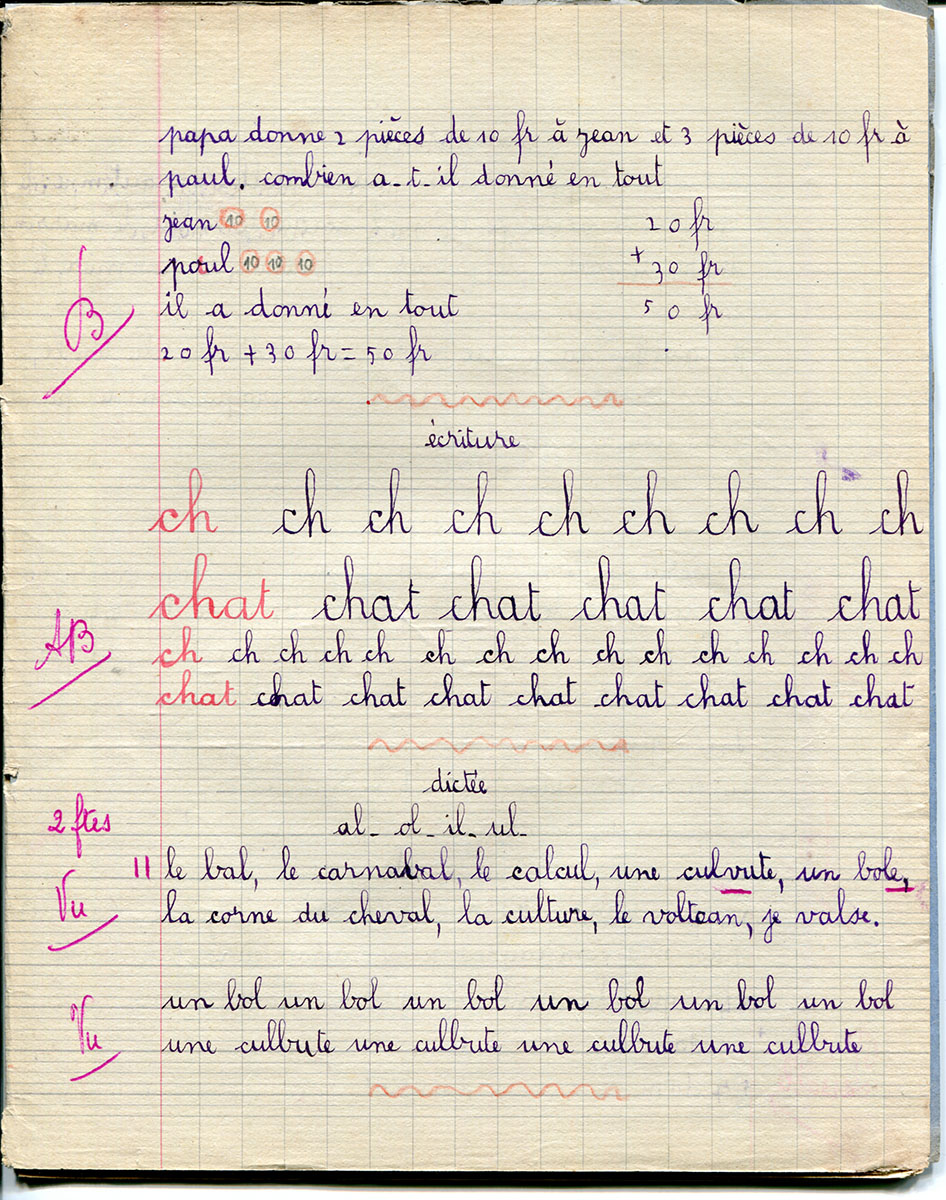 papa donne 2 pièces de 10 fr à jean et 3 pièces de 10 fr à
paul. combien a-t-il donné en tout
jean 10 10
20 fr
paul 10 10 10
+ 30 fr
il a donné en tout
50 fr
B
20 fr + 30 fr = 50 fr
écriture
ch ch ch ch ch ch ch ch ch
chat chat chat chat chat chat
AB
ch ch ch ch ch ch ch ch ch ch ch ch ch ch ch
chat chat chat chat chat chat chat chat chat
dictée
2 ftes
al- ol- il- ul-
le bal, le carnaval, le calcul, une culvute, un bole,
Vu
la corne du cheval, la culture, le voltean, je valse.
un bol un bol un bol un bol un bol un bol
Vu
une culbute une culbute une culbute une culbute